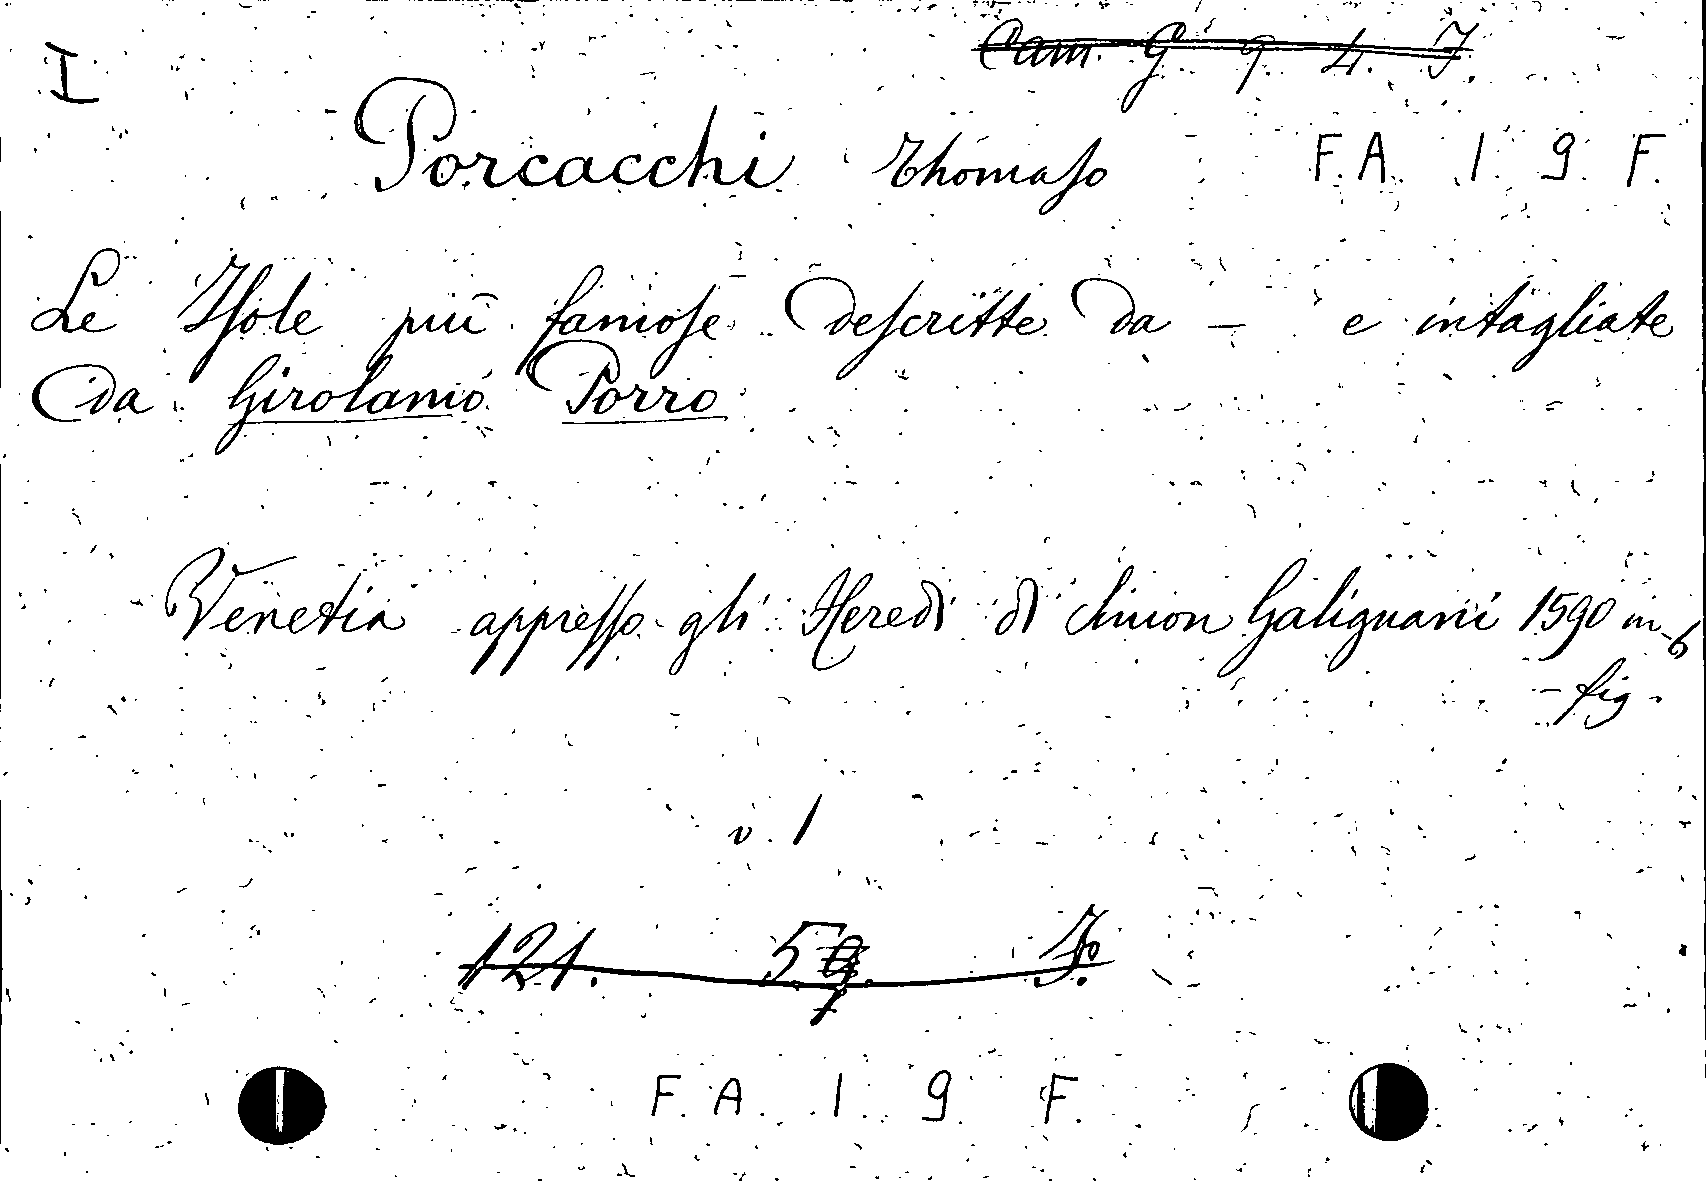 Cam. G 9. 4. I.
I
Porcacchi Thomaso F. A. 1 9 F.
Le Isole più famose descritte da — e intagliate
da Girolamo Porro
Venetia appresso gli Heredi di Simon Galignani 1590 in-6
- fig -
v. 1
121. 5 I.
F. A. 1 9 F.